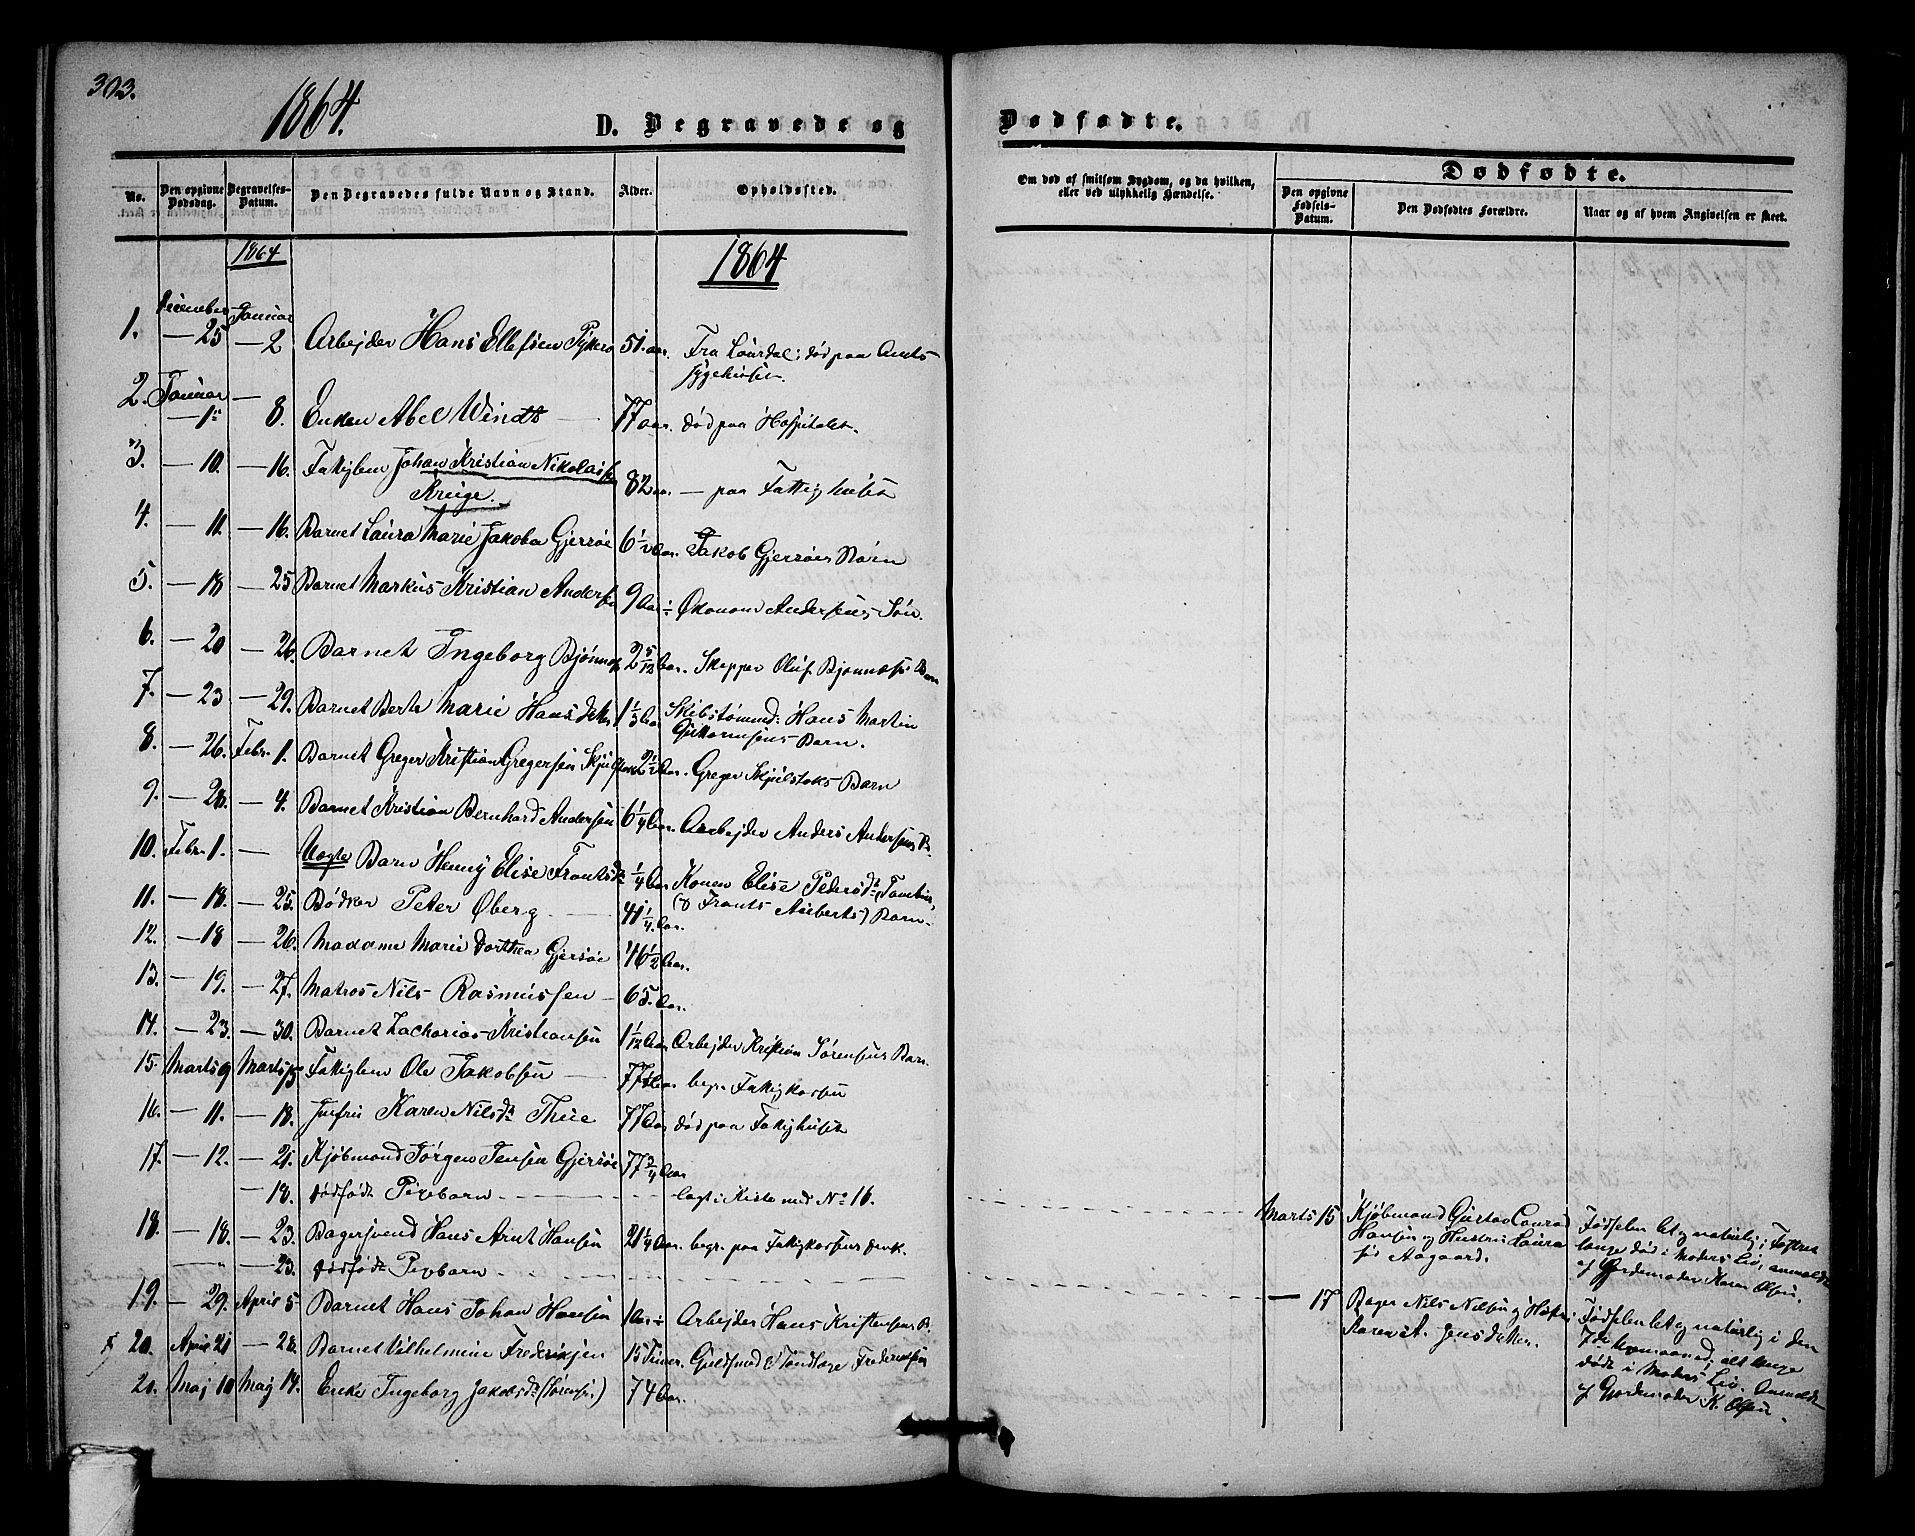 303.
1864.
D. Begravede og
Dødfødte.
No.
Den opgivne Dødsdag.
Begravelses-Datum.
Den Begravedes fulde Navn og Stand.
Alder.
Opholdssted.
Om død af smitsom Sygdom, og da hvilken, eller ved ulykkelig Hændelse.
Dødfødte.
Den opgivne Fødsels-Datum.
Den Dødfødtes Forældre.
Naar og af hvem Angivelsen er skeet.
1864
1864
1. December — 25 Januar — 2 Arbejder Hans Ellefsen 51. aar. Fra Laurdal; død paa Amts
sygehuset.
2. Januar — 1ste — 8. Enken Abel Windt — 77 aar. død paa Hospitalet.
3. — 10. — 16. Fattiglem Johan Kristian Nikolais
Krüge. 82 aar. — paa Fattighuset
4. — 11. — 16. Barnet Laura Marie Jakoba Gjersøe 6 1/2 Aar. Jakob Gjersøes Barn
5. — 18 — 25 Barnet Markus Kristian Anders 9 Aar Økonom Andersens Søn.
6. — 20 — 26. Barnet Ingeborg Bjønnes 2 5/12 Aar. Skipper Oluf Bjønnes' Barn
7. — 23 — 29. Barnet Berte Marie Hansdtter 1 1/3 Aar Skibstømmd: Hans Martin
Barn.
8. — 26. Febr. 1. Barnet Greger Kristian Gregersen 2 1/2 Aar. Greger Barn
9. — 28. — 4. Barnet Kristian Bernhard Andersen 6 1/4 Aar. Arbejder Anders Andersens B.
10. Febr. 1. — Uægte Barn Henny Elise Frantsdt. 1/4 Aar Konen Elise Pedersdt.
(& Frants Auberts) Barn
11. — 18. — 25. Bødker Peter Øberg — 41 1/4 Aar.
12. — 18 — 26. Madame Marie Dorthea Gjersøe 46 1/2 Aar.
13. — 19. — 27. Matros Nils Rasmussen — 65. Aar.
14. — 23. — 30. Barnet Zacharias Kristiansen 1 1/12 Aar Arbejder Kristian Sørensens Barn.
15. Marts 9 Marts 15 Fattiglem Ole Jakobsen — 77 Aar begr. Fattigkassen
16. — 11. — 18. Jomfru Karen Nilsdt. Thue 77 Aar død paa Fattighuset
17. — 12. — 21. Kjøbmand Jørgen Jensen Gjersøe 77 3/4 Aar
— 18. dødfødt Pigebarn — lagt i Kiste med No 16.
Marts 15 Kjøbmand Gustav Conrad
Hansen og Hustru Laura
Aagaard.
Fødselen let og naturlig; Fostret
længe død i Moders Liv, anmeldt
af Gjordemoder Karen Olsen.
18. — 18. — 23. Bagersvend Hans Arnt Hansen 21 1/4 Aar. begr. paa Fattigkassens
— " — 23. dødfødt Pigebarn —
— 17 Bager Nils Nilsen og Hustru
Karen A. Jensdtter.
Fødselen let og naturlig i den
7de Svangerskabs
død i Moders Liv. Anmeldt
af Gjordemoder K. Olsen.
19. — 29. April 5 Barnet Hans Johan Hansen 1 Aar Arbejder Hans Kristensens B.
20. April 21 — 28. Barnet Vilhelmine Frederiksen 15 Timer. Guldsmed & Tandlæge Frederiksen
21. Maj 10 Maj 14. Enke Ingeborg Jakobsdt. (Sørensen) 74 Aar.